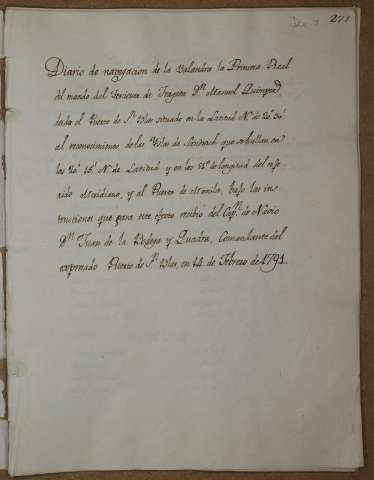 271
Diario de navegacion de la Balandra la Princesa Real
del mando del Teniente de Fragata Dn. Manuel Quimper
desde el Puerto de Sn. Blas situado en la Latitud N. de
al reconocimiento de las Yslas de Sandwich que se hallan en
los 20° 15' N. de Latitud y en los de longitud del
Meridiano, y al Puerto de Manila, bajo las ins-
trucciones que para este efecto recibió del Capn. de Navio
Dn. Juan de la Bodega y Quadra, Comandante del
expresado Puerto de Sn. Blas, en 14 de Febrero de 1791.